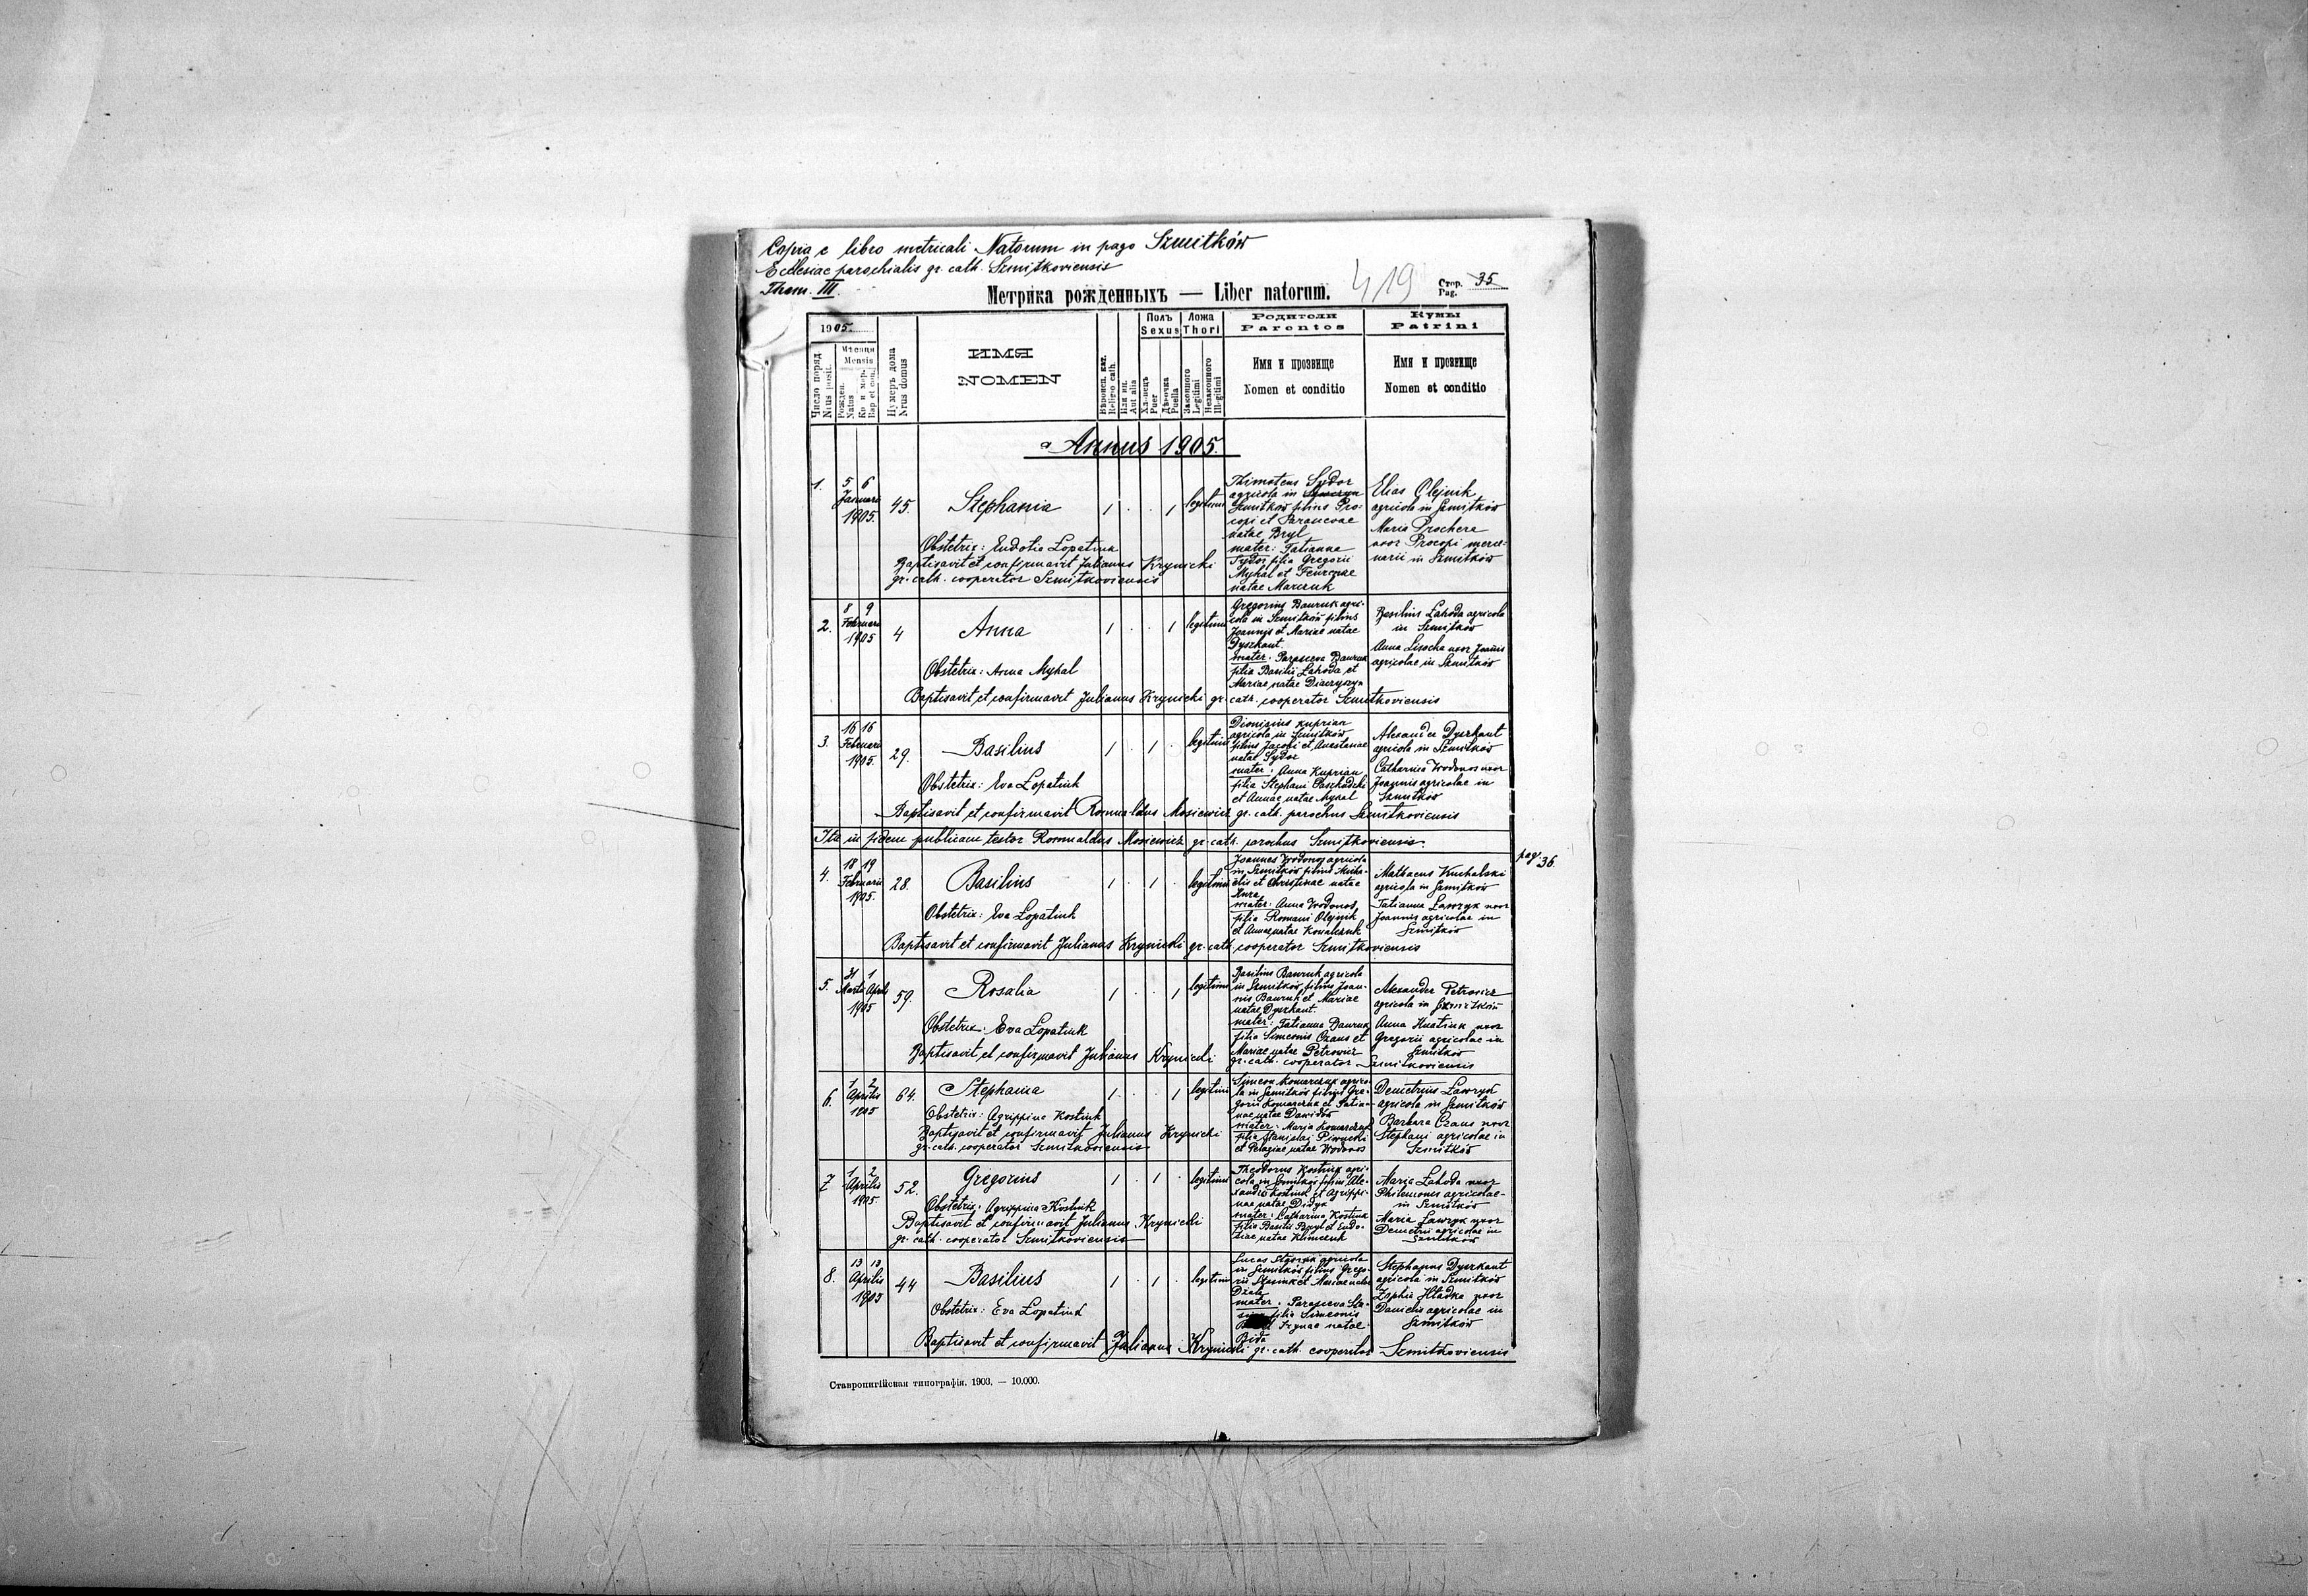 Copia e libro metricali Natorum in pago Szmitków
Ecclesiae parochialis gr. cath. Szmitkoviensis
Thom. III.
Метрика рожденныхъ — Liber natorum.
419
Стор. Pag. 35
1905.
Мѣсяця
Mensis
Число поряд.
Nrus posit.
Рожден.
Natus
Нумеръ дома
Nrus domus
ИМЯ
NOMEN
Religio cath.
Aut alia
Полъ
Sexus
Puer
Дѣвочка
Puella
Ложа
Thori
Законного
Legitimi
Незаконного
Illegitimi
Родители
Parentes
Имя и прозвище
Nomen et conditio
Кумы
Patrini
Имя и прозвище
Nomen et conditio
Annus 1905.
1.
5 6
Januarii
1905.
45.
Stephania
1 . . 1
legitimi
Obstetrix: Eudotia Lopatiuk
Baptisavit et confirmavit Julianus Krynicki
gr. cath. cooperator Szmitkoviensis
Thimoteus Sydor
agricola in
Szmitków filius Pro-
copi et Parascevae
natae Bryl
mater: Tatianna
Sydor filia Gregorii
Myhal et
natae Marczuk
Elias Olejnik
agricola in Szmitków
Maria Prochera
uxor Procopi merce-
narii in Szmitków
2.
8 9
Februarii
1905
4
Anna
1 . . 1
legitimi
Obstetrix: Anna Myhal
Baptisavit et confirmavit Julianus Krynicki gr. cath. cooperator Szmitkoviensis
Gregorius Bauruk agri-
cola in Szmitków filius
Joannis et Mariae natae
Dyszkant.
mater: Parasceva Bauruk
filia Basilii Lahoda et
Mariae natae Diaczyszyn
Basilius Lahoda agricola
in Szmitków
Anna Lisocha uxor Joannis
agricolae in Szmitków
3.
16 16
Februarii
1905.
29.
Basilius
1 . 1 .
legitimi
Obstetrix: Eva Lopatiuk
Baptisavit et confirmavit Romualdus Mosiewicz gr. cath. parochus Szmitkoviensis
Dionisius Kuprian
agricola in Szmitków
filius Jacobi et Anastasiae
natae Sydor
mater: Anna Kuprian
filia Stephani
et Annae natae Myhal
Alexander Dyszkant
agricola in Szmitków
Catharina Wodonos uxor
Joannis agricolae in
Szmitków
Ita in fidem publicam testor Romualdus Mosiewicz gr. cath. parochus Szmitkoviensis.
pag. 36.
4.
18 19
Februarii
1905.
28.
Basilius
1 . 1 .
legitimi
Obstetrix: Eva Lopatiuk
Baptisavit et confirmavit Julianus Krynicki gr. cath. cooperator Szmitkoviensis
Joannes Wodonos agricola
in Szmitków filius Micha-
elis et Christinae natae
mater: Anna Wodonos
filia Romani Olejnik
et Annae natae Kowalczuk
Mathaeus Kuchalski
agricola in Szmitków
Tatianna Lawryk uxor
Joannis agricolae in
Szmitków
5.
31 1
Martii Aprili
1905
59.
Rosalia
1 . . 1
legitimi
Obstetrix: Eva Lopatiuk
Baptisavit et confirmavit Julianus Krynicki
gr. cath. cooperator Szmitkoviensis
Basilius Bauruk agricola
in Szmitków filius Joan-
nis Bauruk et Mariae
natae Dyszkant.
mater: Tatianna Bauruk
filia Simeonis Ozaus et
Mariae natae Petrowicz
Alexander Petrowicz
agricola in Szmitków
Anna Knatiuk uxor
Gregorii agricolae in
Szmitków
6.
1 2
Aprilis
1905
64.
Stephania
1 . . 1
legitimi
Obstetrix: Agrippina Kostiuk
Baptisavit et confirmavit Julianus Krynicki
gr. cath. cooperator Szmitkoviensis
Simeon Komarczuk agrico-
la in Szmitków filius Gre-
gorii Komarczuk et Tatia-
nae natae Dawidów
mater: Maria Komarczuk
filia Stanislai Piwnicki
et Pelagiae natae Wodonos
Demetrius Lawryk
agricola in Szmitków
Barbara Ozaus uxor
Stephani agricolae in
Szmitków
7
1 2
Aprilis
1905.
52.
Gregorius
1 . 1 .
legitimi
Obstetrix: Agrippina Kostiuk
Baptisavit et confirmavit Julianus Krynicki
gr. cath. cooperator Szmitkoviensis
Theodorus Kostiuk agri-
cola in Szmitków filius Ale-
xandri Kostiuk et Agrippi-
nae natae Didyk
mater: Catharina Kostiuk
filia Basilii Bryl et Eudo-
tiae natae Klimczuk
Maria Lahoda uxor
Philemonis agricolae
in Szmitków
Maria Lawryk uxor
Demetrii agricolae in
Szmitków
8.
13 13
Aprilis
1905
44
Basilius
1 . 1 .
legitimi
Obstetrix: Eva Lopatiuk
Baptisavit et confirmavit Julianus Krynicki gr. cath. cooperator Szmitkoviensis
Lucas Stasiuk agricola
in Szmitków filius Grego-
rii Stasiuk et Mariae natae
mater: Parasceva Sta-
filia Simeonis
Irynae natae
Bida
Stephanus Dyszkant
agricola in Szmitków
Zophia Hladka uxor
Danielis agricolae in
Szmitków
Ставропигійская типографія. 1903. — 10.000.